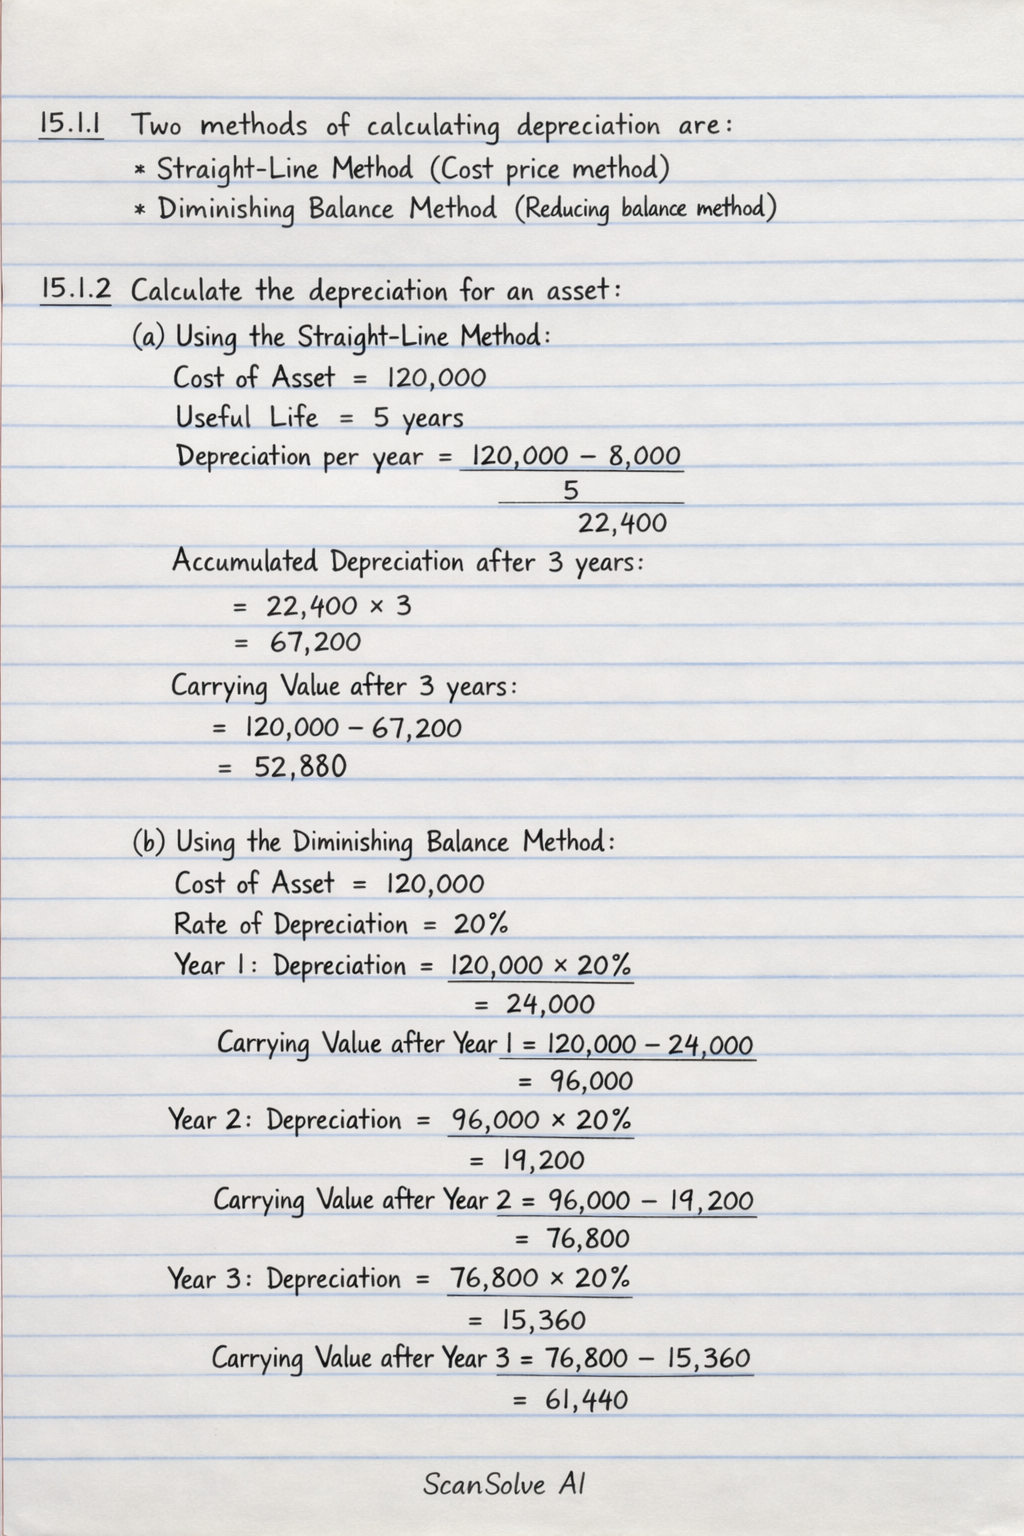 15.1.1 Two methods of calculating depreciation are:
* Straight-Line Method (Cost price method)
* Diminishing Balance Method (Reducing balance method)
15.1.2 Calculate the depreciation for an asset:
(a) Using the Straight-Line Method:
Cost of Asset = 120,000
Useful Life = 5 years
Depreciation per year = 120,000 – 8,000
5
22,400
Accumulated Depreciation after 3 years:
= 22,400 × 3
= 67,200
Carrying Value after 3 years:
= 120,000 – 67,200
= 52,880
(b) Using the Diminishing Balance Method:
Cost of Asset = 120,000
Rate of Depreciation = 20%
Year 1: Depreciation = 120,000 × 20%
= 24,000
Carrying Value after Year 1 = 120,000 – 24,000
= 96,000
Year 2: Depreciation = 96,000 × 20%
= 19,200
Carrying Value after Year 2 = 96,000 – 19,200
= 76,800
Year 3: Depreciation = 76,800 × 20%
= 15,360
Carrying Value after Year 3 = 76,800 – 15,360
= 61,440
ScanSolve AI